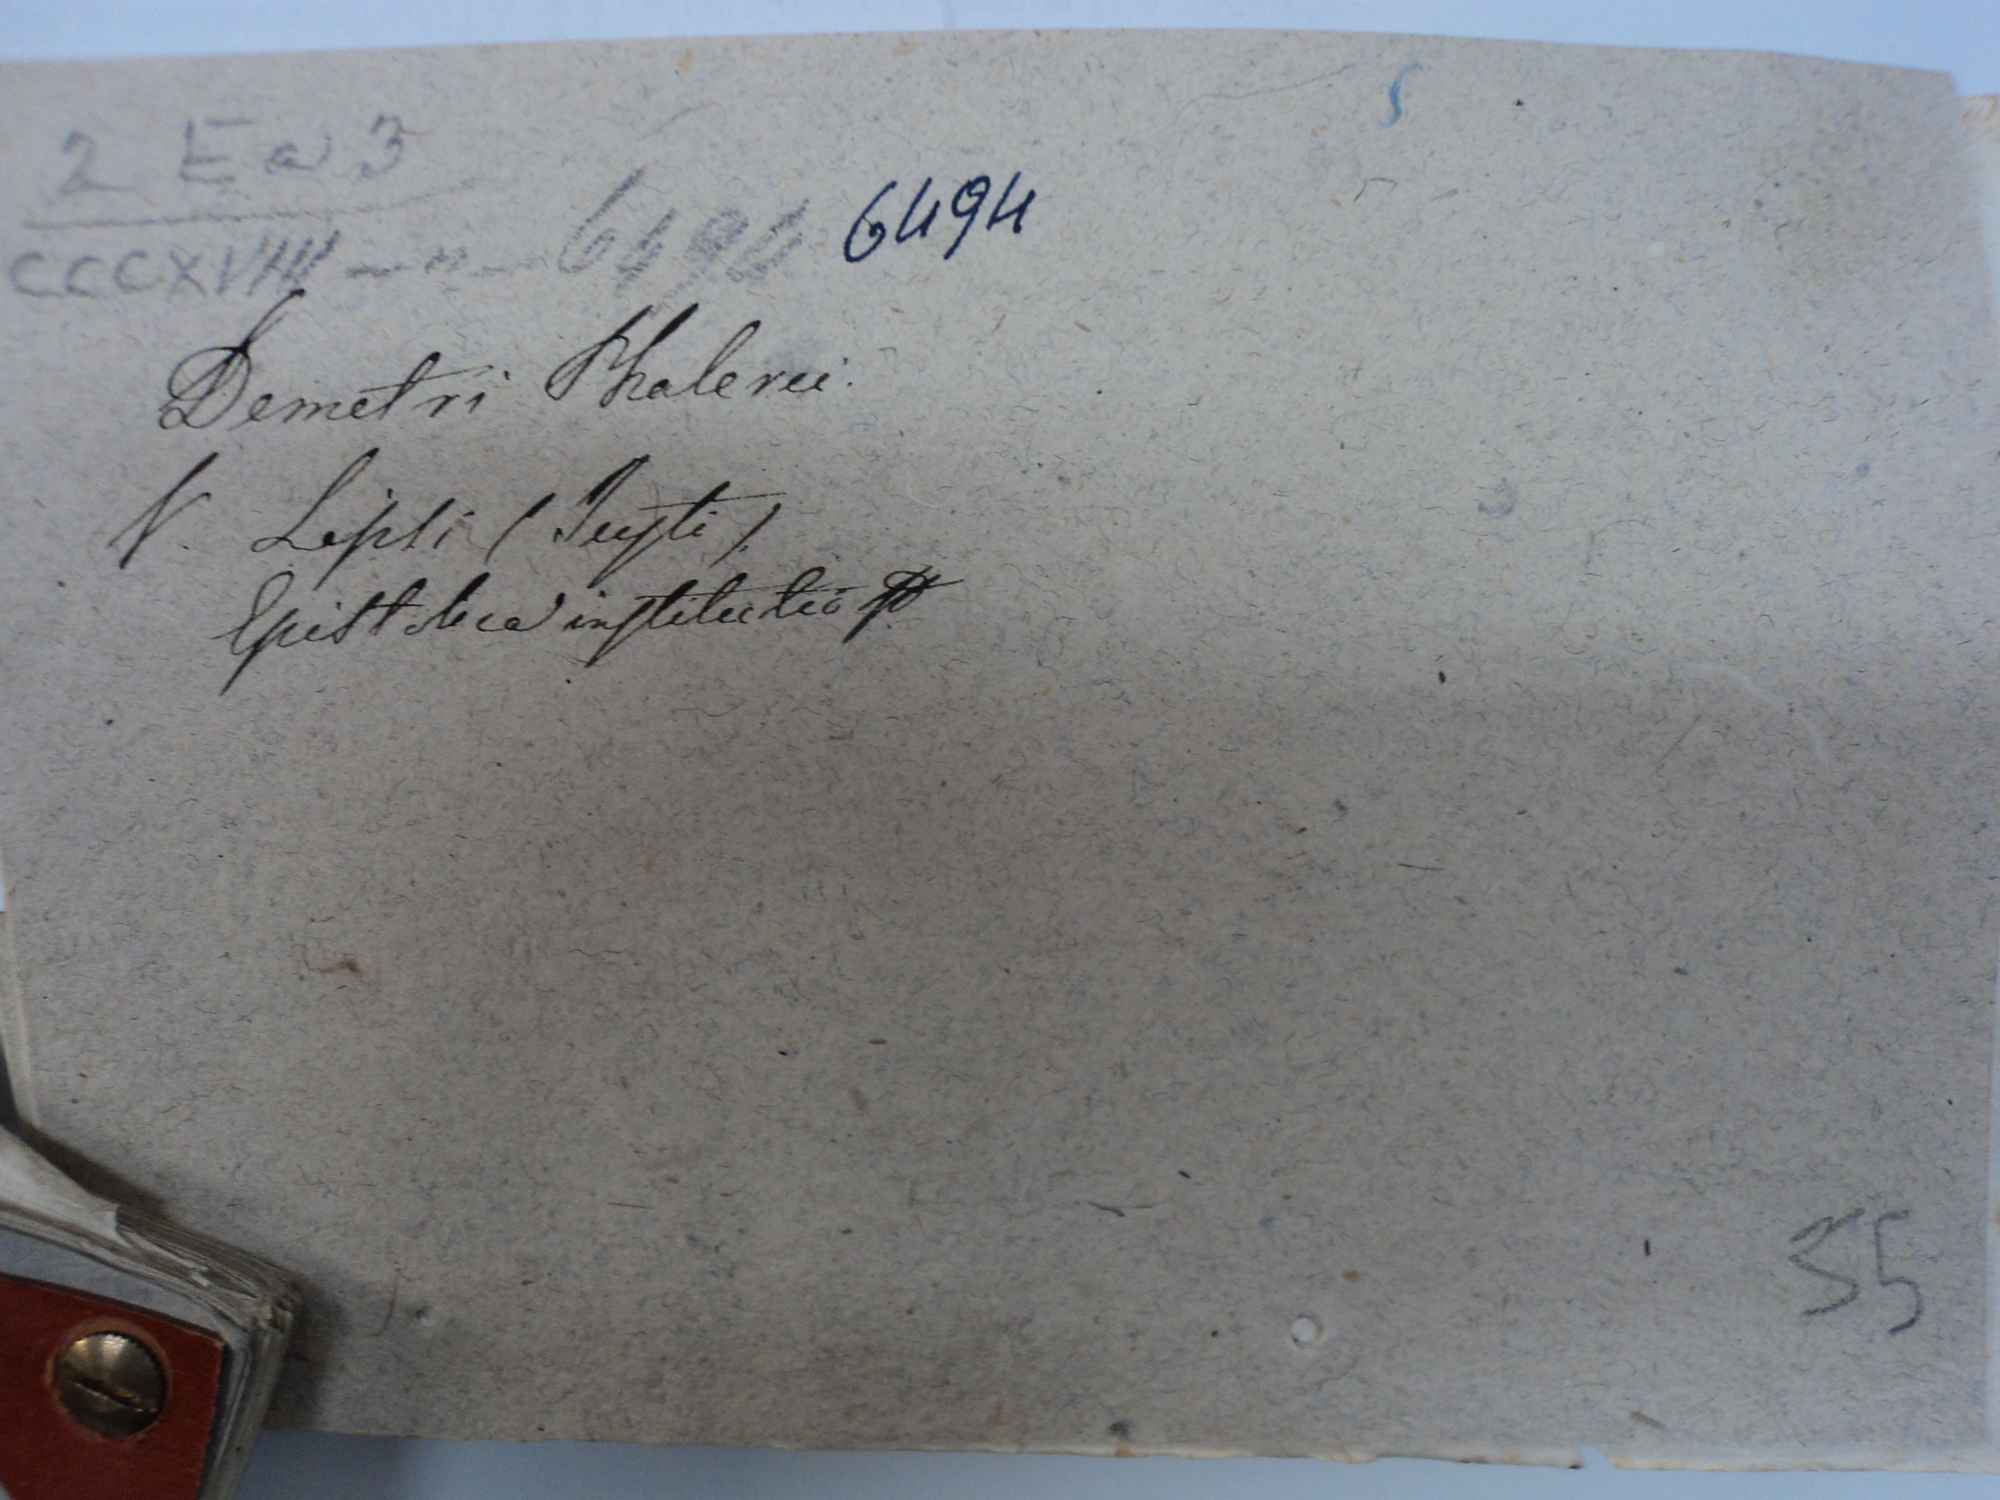 S
2 Ea 3
CCCXVIII — " — 6494 6494
Demetri Phalerei.
V. Lipsi (Justi).
Epistolica institutio
55